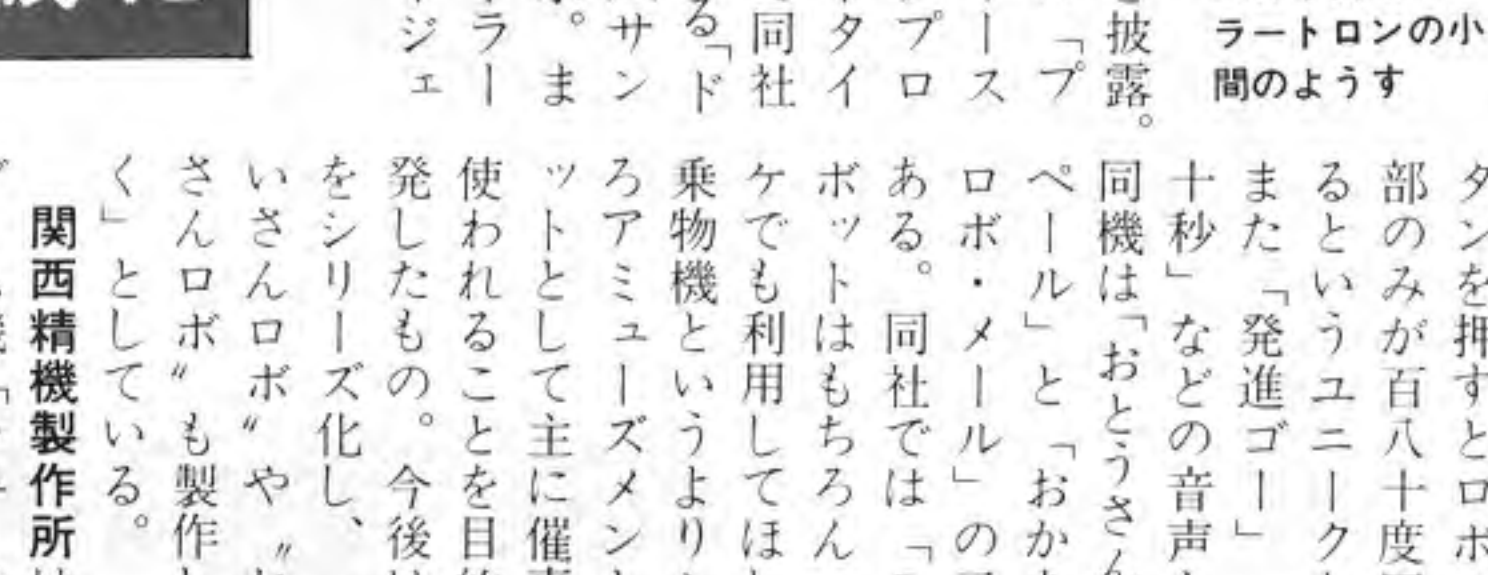 ラートロンの小
間のようす
披露。
「プ
ース
プロ
タイ
同社
る「ド
サン
。ま
ラー
ジェ
タンを押すとロボ
部のみが百八十度
るというユニーク
また「発進ゴー」
十秒」などの音声
同機は「おとうさん
ペール」と「おか
ロボ・メール」の
ある。同社では「
ボットはもちろん
ケでも利用してほ
乗物機というより
ろアミューズメン
ットとして主に催
使われることを目
発したもの。今後
をシリーズ化し、
いさんロボ〃や〃
さんロボ〃も製作
く」としている。
関西精機製作所